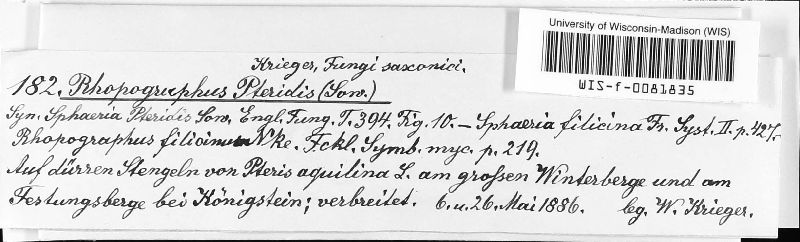 University of Wisconsin-Madison (WIS)
WIS-f-0081835
Krieger, Fungi saxonici.
182. Rhopographus Pteridis (Sow.)
Syn. Sphaeria Pteridis Sow. Engl. Fung. T. 394. Fig. 10. – Sphaeria filicina Fr. Syst. II. p. 427.
Rhopographus filicinum Nke. Fckl. Symb. myc. p. 219.
Auf dürren Stengeln von Pteris aquilina L. am großen Winterberge und am
Festungsberge bei Königstein; verbreitet. 6. u. 26. Mai 1886. leg. W. Krieger.